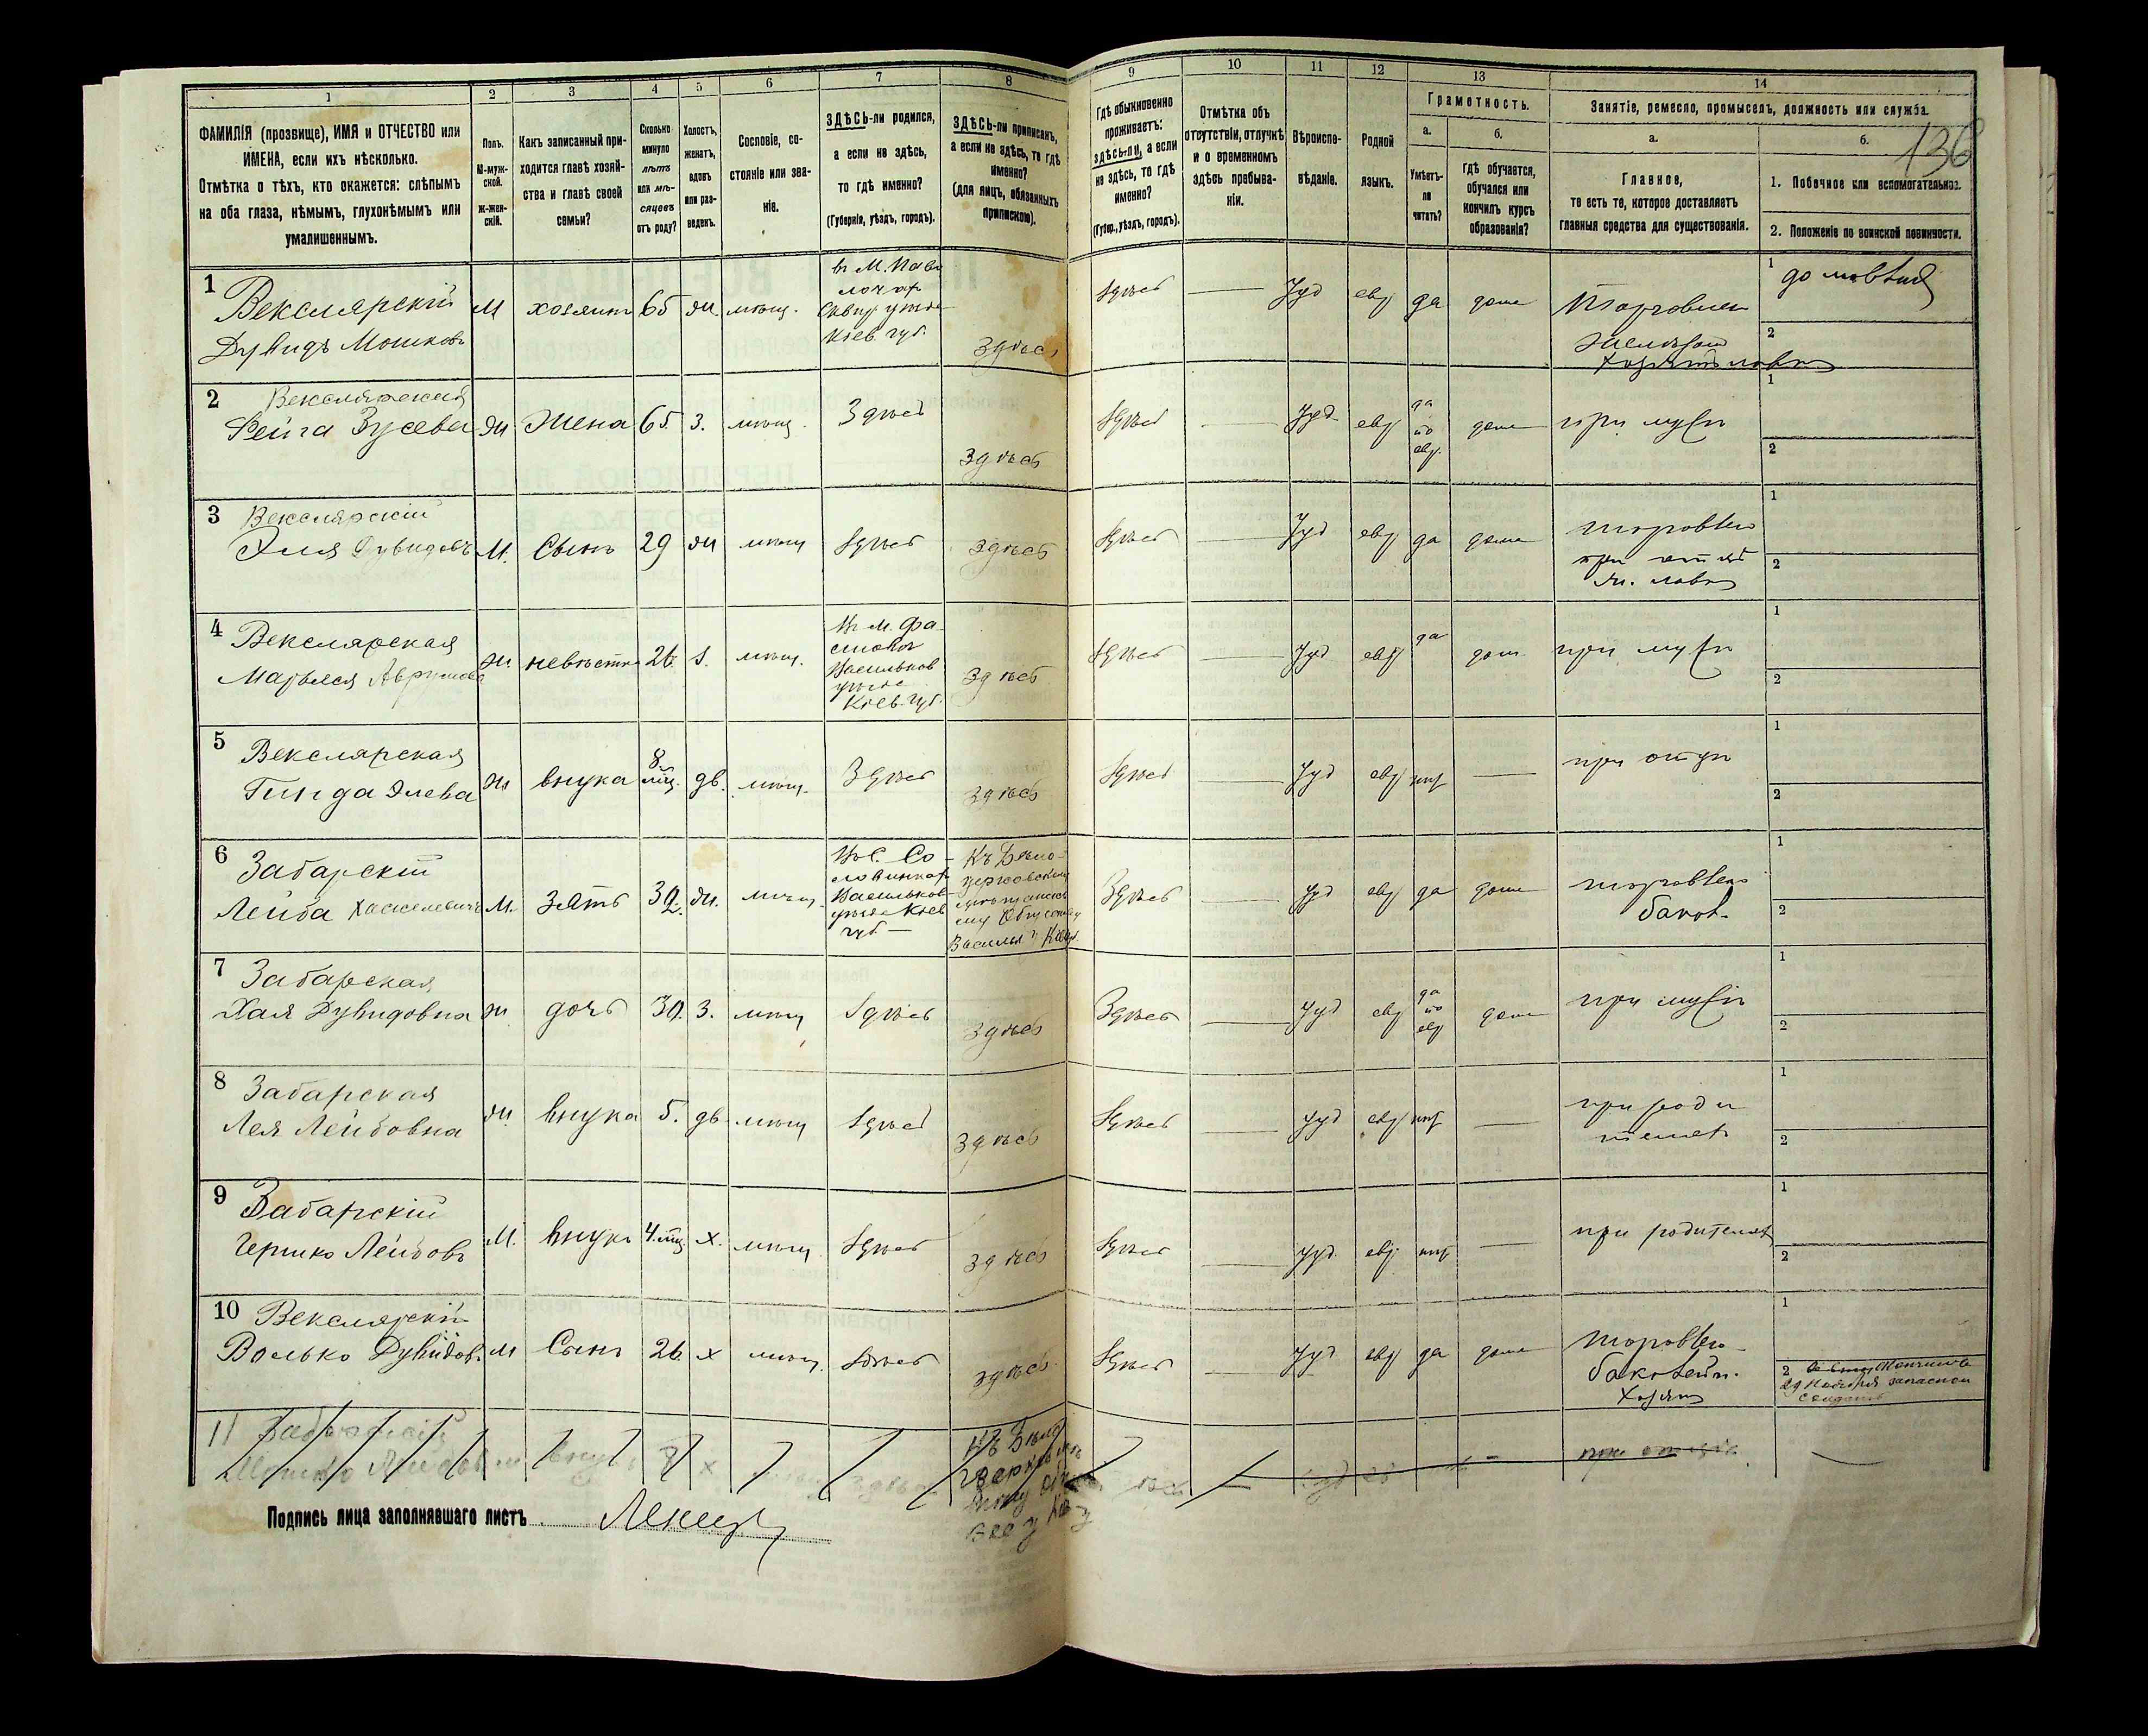 1 2 3 4 5 6 7 8 9 10 11 12 13 14
136
ФАМИЛІЯ (прозвище), ИМЯ и ОТЧЕСТВО или
ИМЕНА, если ихъ нѣсколько.
Отмѣтка о тѣхъ, кто окажется: слѣпымъ
на оба глаза, нѣмымъ, глухонѣмымъ или
умалишеннымъ.
Полъ.
М-муж-
ской.
ж-жен-
скій.
Какъ записанный при-
ходится главѣ хозяй-
ства и главѣ своей
семьи?
Сколько
минуло
лѣтъ
или мѣ-
сяцевъ
отъ роду?
Холостъ,
женатъ,
вдовъ
или раз-
веденъ.
Сословіе, со-
стояніе или зва-
ніе.
ЗДѢСЬ-ли родился,
а если не здѣсь,
то гдѣ именно?
(Губернія, уѣздъ, городъ).
ЗДѢСЬ-ли приписанъ,
а если не здѣсь, то гдѣ
именно?
(для лицъ, обязанныхъ
припискою).
Гдѣ обыкновенно
проживаетъ:
здѣсь-ли, а если
не здѣсь, то гдѣ
именно?
(Губер., уѣздъ, городъ).
Отмѣтка объ
отсутствіи, отлучкѣ
и о временномъ
здѣсь пребыва-
ніи.
Вѣроиспо-
вѣданіе.
Родной
языкъ.
Грамотность.
а.
Умѣетъ-
ли
читать?
б.
Гдѣ обучается,
обучался или
кончилъ курсъ
образованія?
Занятіе, ремесло, промыселъ, должность или служба.
а.
Главное,
то есть то, которое доставляетъ
главныя средства для существованія.
б.
1. Побочное или вспомогательное.
2. Положеніе по воинской повинности.
1 Векслярскій
Дувидъ Мошковъ
М хозяинъ 65 ж. мѣщ.
въ М. Паво
лочи
Сквир. уѣзда
Кіев. губ.
Здѣсь
Здѣсь — Іуд евр да дома
Торговлей
1
2
2 Векслярская
Фейга Зусева
ж Жена 65. з. мѣщ. Здѣсь Здѣсь
Здѣсь — Іуд евр
да
по
евр.
дома при мужѣ
1
2
3 Векслярскій
Эля Дувидовъ
М. Сынъ 29 ж мѣщ Здѣсь Здѣсь
Здѣсь — Іуд евр да дома
торговлею
при отцѣ
1
2
4 Векслярская
Марьяся
ж невѣстка 26. з. мѣщ.
Въ м. Фа-
стовѣ
Васильков
уѣзда
Кіев. губ.
Здѣсь
Здѣсь — Іуд евр да дома при мужѣ
1
2
5 Векслярская
Гинда Элева
ж внука 8 мѣц. дв. мѣщ. Здѣсь Здѣсь
Здѣсь — Іуд евр нѣт — при отцѣ
1
2
6 Забарскій
Лейба Хаскелевичъ
М. Зять 32. ж. мѣщ.
Васильков
уѣзда Кіев
губ. —
Къ Бѣло-
церковскому
мѣщанско
му Обществу
Здѣсь — Іуд евр да дома
торговлею
бакал.
1
2
7 Забарская
Хая Дувидовна
ж дочь 30. з. мѣщ Здѣсь Здѣсь
Здѣсь — Іуд евр
да
по
евр
дома при мужѣ
1
2
8 Забарская
Лея Лейбовна
ж. внука 5. дв. мѣщ Здѣсь Здѣсь
Здѣсь — Іуд евр нѣт —
при роди
телях
1
2
9 Забарскій
Гершко Лейбовъ
М. внукъ 4. мц х. мѣщ Здѣсь Здѣсь
Здѣсь — Іуд. евр. нѣт — при родителях
1
2
10 Векслярскій
Волько Дувидовъ
М Сынъ 26. х мѣщ. Здѣсь Здѣсь
Здѣсь — Іуд евр да дома
торговлею
Хозяин
1
2
запасной
11 Забарскій
Мошко Лейбовъ
Подпись лица заполнявшаго листъ